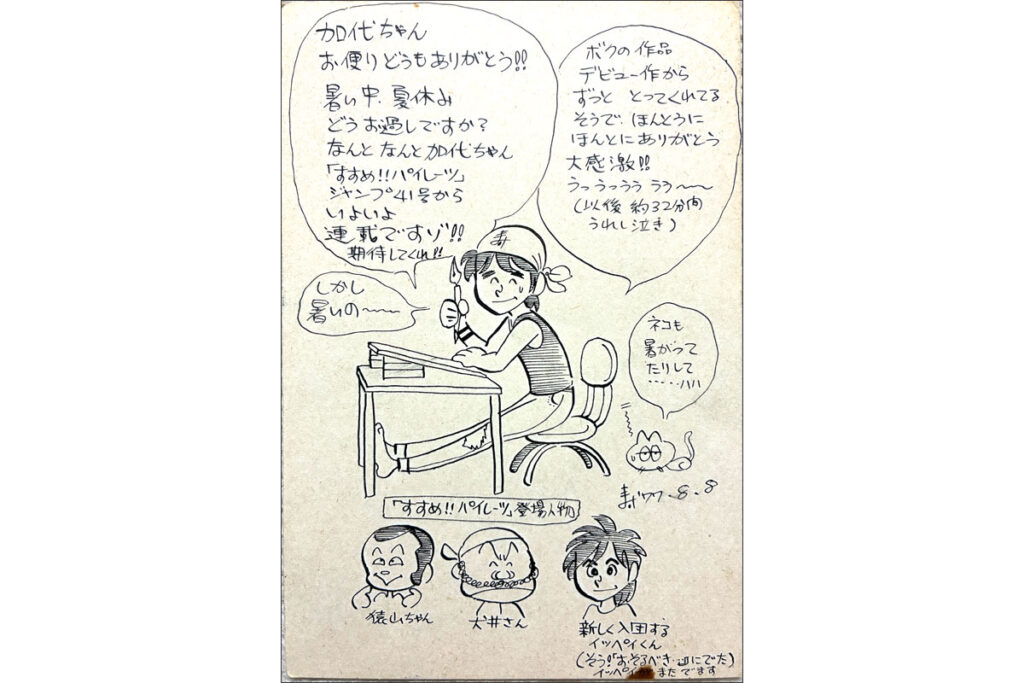 加代ちゃん
お便りどうもありがとう!!
暑い中、夏休み
どうお過しですか?
なんと なんと加代ちゃん
「すすめ!!パイレーツ」
ジャンプ41号から
いよいよ
連載ですゾ!!
期待してくれ!!
ボクの作品
デビュー作から
ずっと とってくれてる
そうで、ほんとうに
ほんとにありがとう
大感激!!
うっうっうぅ ううーー
(以後 約32分間
うれし泣き)
しかし
暑いのーー
ネコも
暑がって
たりして
……ハハ
77.8.8
「すすめ!!パイレーツ」登場人物
猿山ちゃん
犬井さん
新しく入団する
イッペイくん
(そう!「おそるべき
にでた)
イッペイが またでます